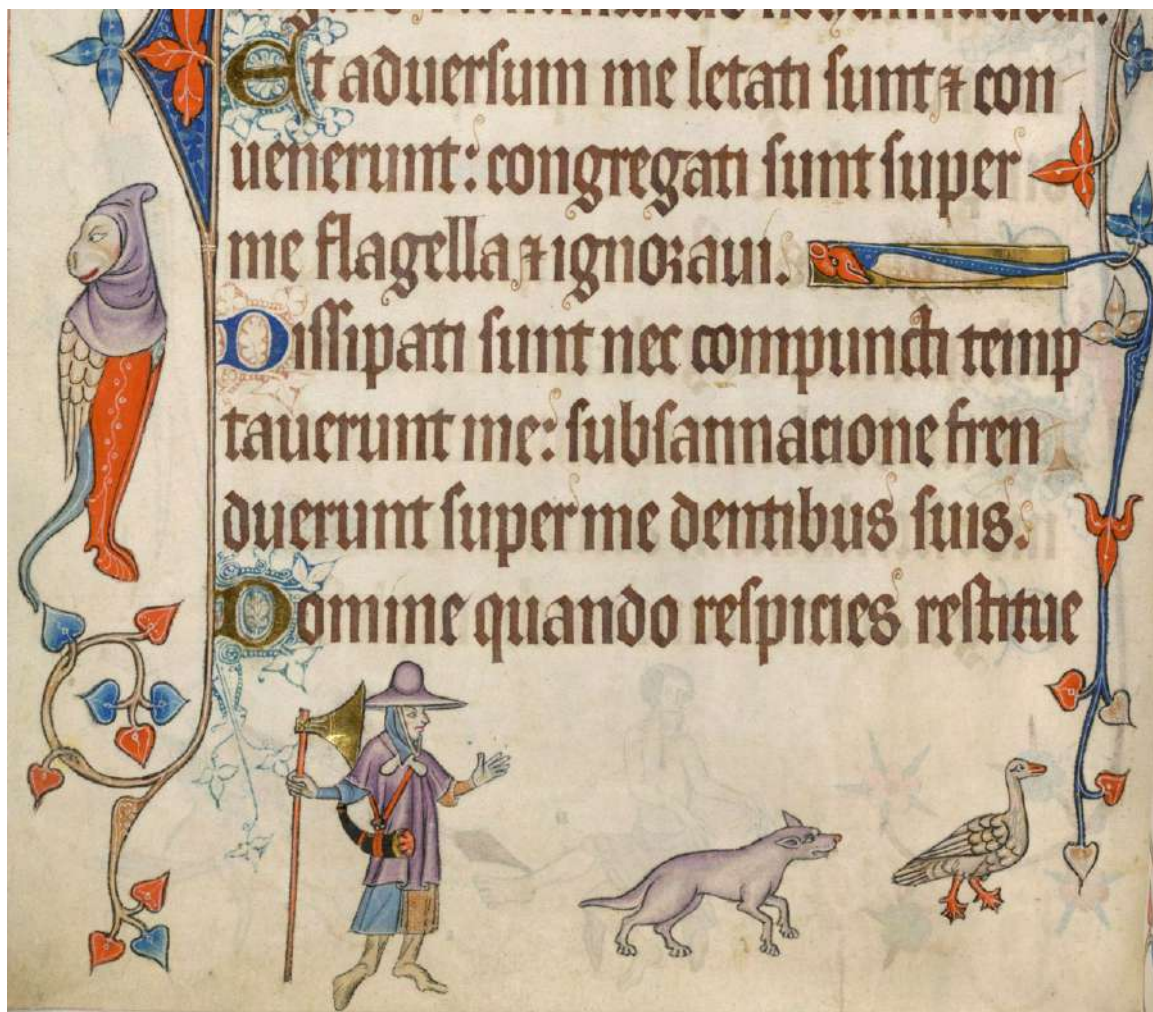 Et aduersum me letati sunt ⁊ con
uenerunt: congregati sunt super
me flagella ⁊ ignoraui.
Dissipati sunt nec compuncti temp
tauerunt me: subsannacione fren
duerunt super me dentibus suis.
Domine quando respicies restitue